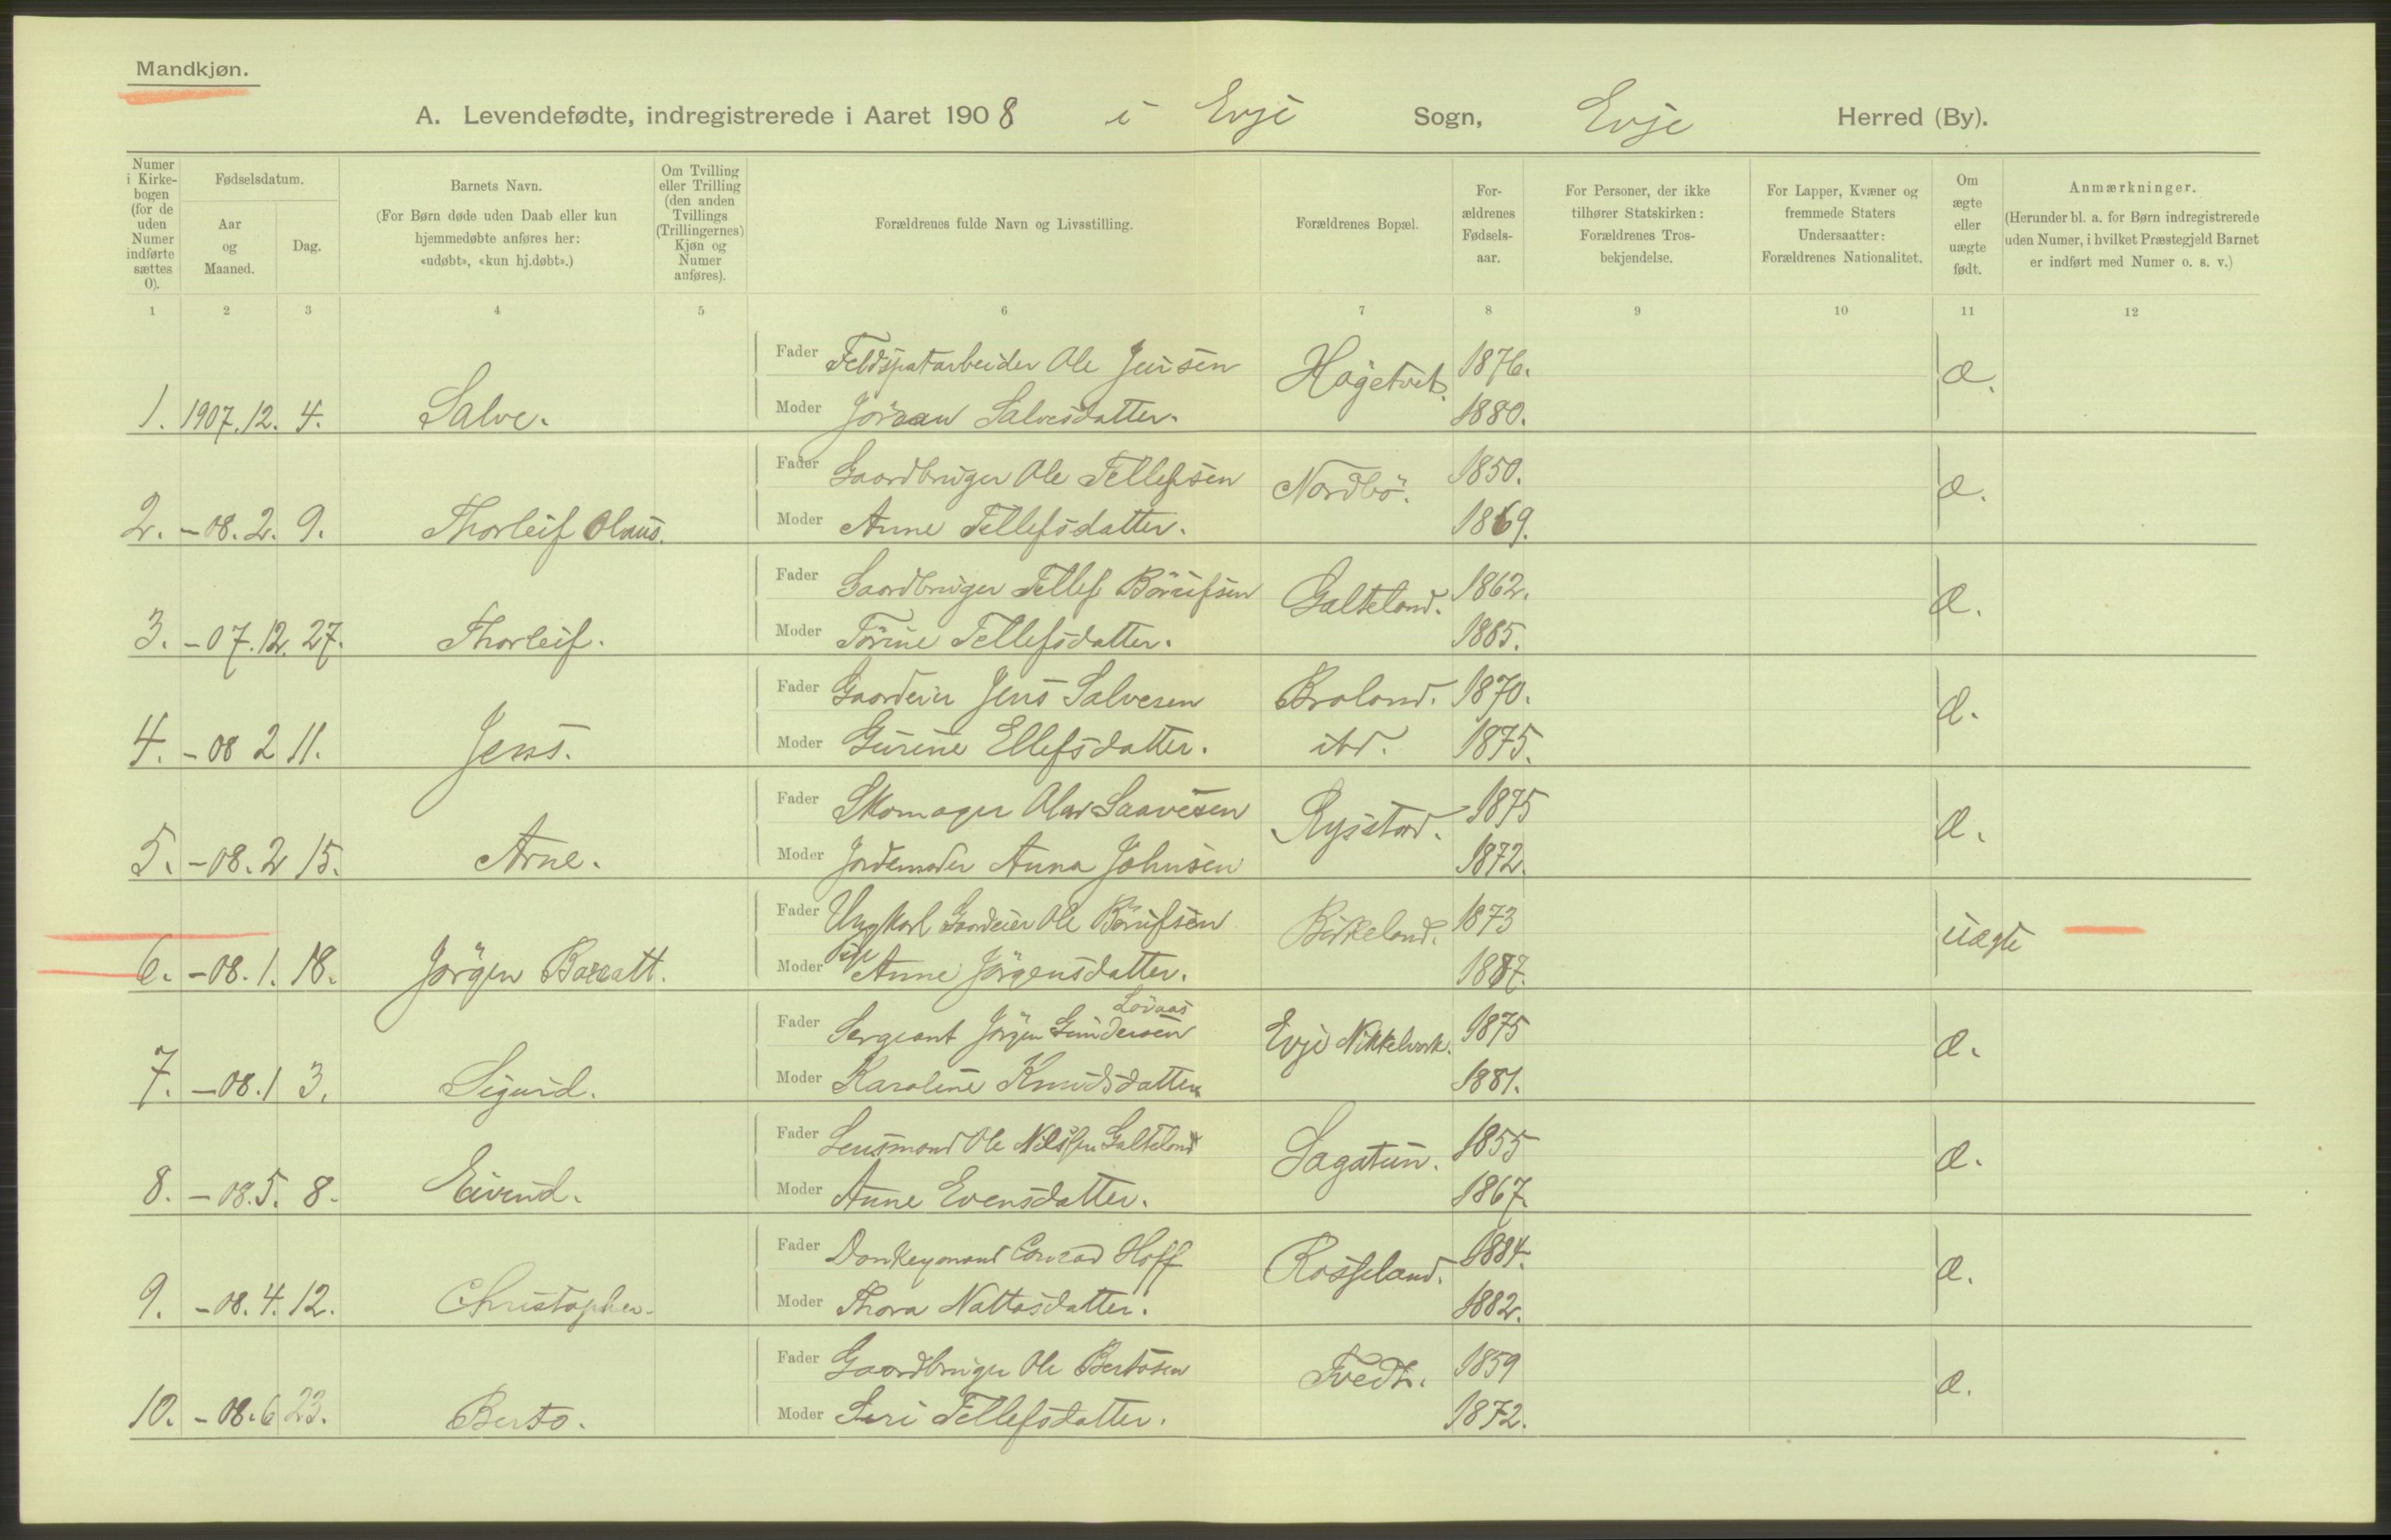 Mandkjøn.
A. Levendefødte, indregistrerede i Aaret 1908 i Evje Sogn, Evje Herred (By).
Numer i Kirkebogen (for de uden Numer indførte sættes 0).
Fødselsdatum.
Aar og Maaned.
Dag.
Barnets Navn.
(For Børn døde uden Daab eller kun hjemmedøbte anføres her: «udøbt», «kun hj.døbt».)
Om Tvilling eller Trilling (den anden Tvillings (Trillingernes) Kjøn og Numer anføres).
Forældrenes fulde Navn og Livsstilling.
Forældrenes Bopæl.
For-ældrenes Fødsels-aar.
For Personer, der ikke tilhører Statskirken: Forældrenes Tros-bekjendelse.
For Lapper, Kvæner og fremmede Staters Undersaatter: Forældrenes Nationalitet.
Om ægte eller uægte født.
Anmærkninger.
(Herunder bl. a. for Børn indregistrerede uden Numer, i hvilket Præstegjeld Barnet er indført med Numer o. s. v.)
1 2 3 4 5 6 7 8 9 10 11 12
Fader Feldspatarbeider Ole Jensen Hagetvet. 1876. æ.
1. 1907.12. 4. Salve. Moder Jöraan Salvesdatter. 1880.
Fader Gaardbruger Ole Tellefsen Nordbö. 1850. æ.
2. -08. 2. 9. Thorleif Olaus. Moder Anne Tellefsdatter. 1869.
Fader Gaardbruger Tellef Börufsen Galteland. 1862. æ.
3. -07.12. 27. Thorleif. Moder Törine Tellefsdatter. 1865.
Fader Gaardeier Jens Salvesen Braland. 1870. æ.
4. -08 2 11. Jens. Moder Gurine Ellefsdatter. ibd. 1875.
Fader Skomager Olav Saavesen Rysstad. 1875 æ.
5. -08. 2 15. Arne. Moder Jordemoder Anna Johnsen 1872.
Fader Ungkarl Gaardeier Ole Börufsen Birkeland. 1873 uægte
6. -08. 1. 18. Jörgen Barratt. Moder Pige Anne Jörgensdatter. 1887.
Fader Sergeant Jörgen Gundersen Lövaas Evje Nikkelverk. 1875 æ.
7. -08. 1 3. Sigurd. Moder Karoline Knudsdatter 1881.
Fader Lensmand Ole Nilssen Galteland Sagatun. 1855 æ.
8. -08. 5. 8. Eivind. Moder Anne Evensdatter. 1867.
Fader Donkeymand Conrad Hoff Rosseland. 1884. æ.
9. -08. 4. 12. Christopher. Moder Thora Nattosdatter. 1882.
Fader Gaardbruger Ole Bertosen Tvedt. 1859 æ.
10. -08. 6 23. Berto. Moder Siri Tellefsdatter. 1872.